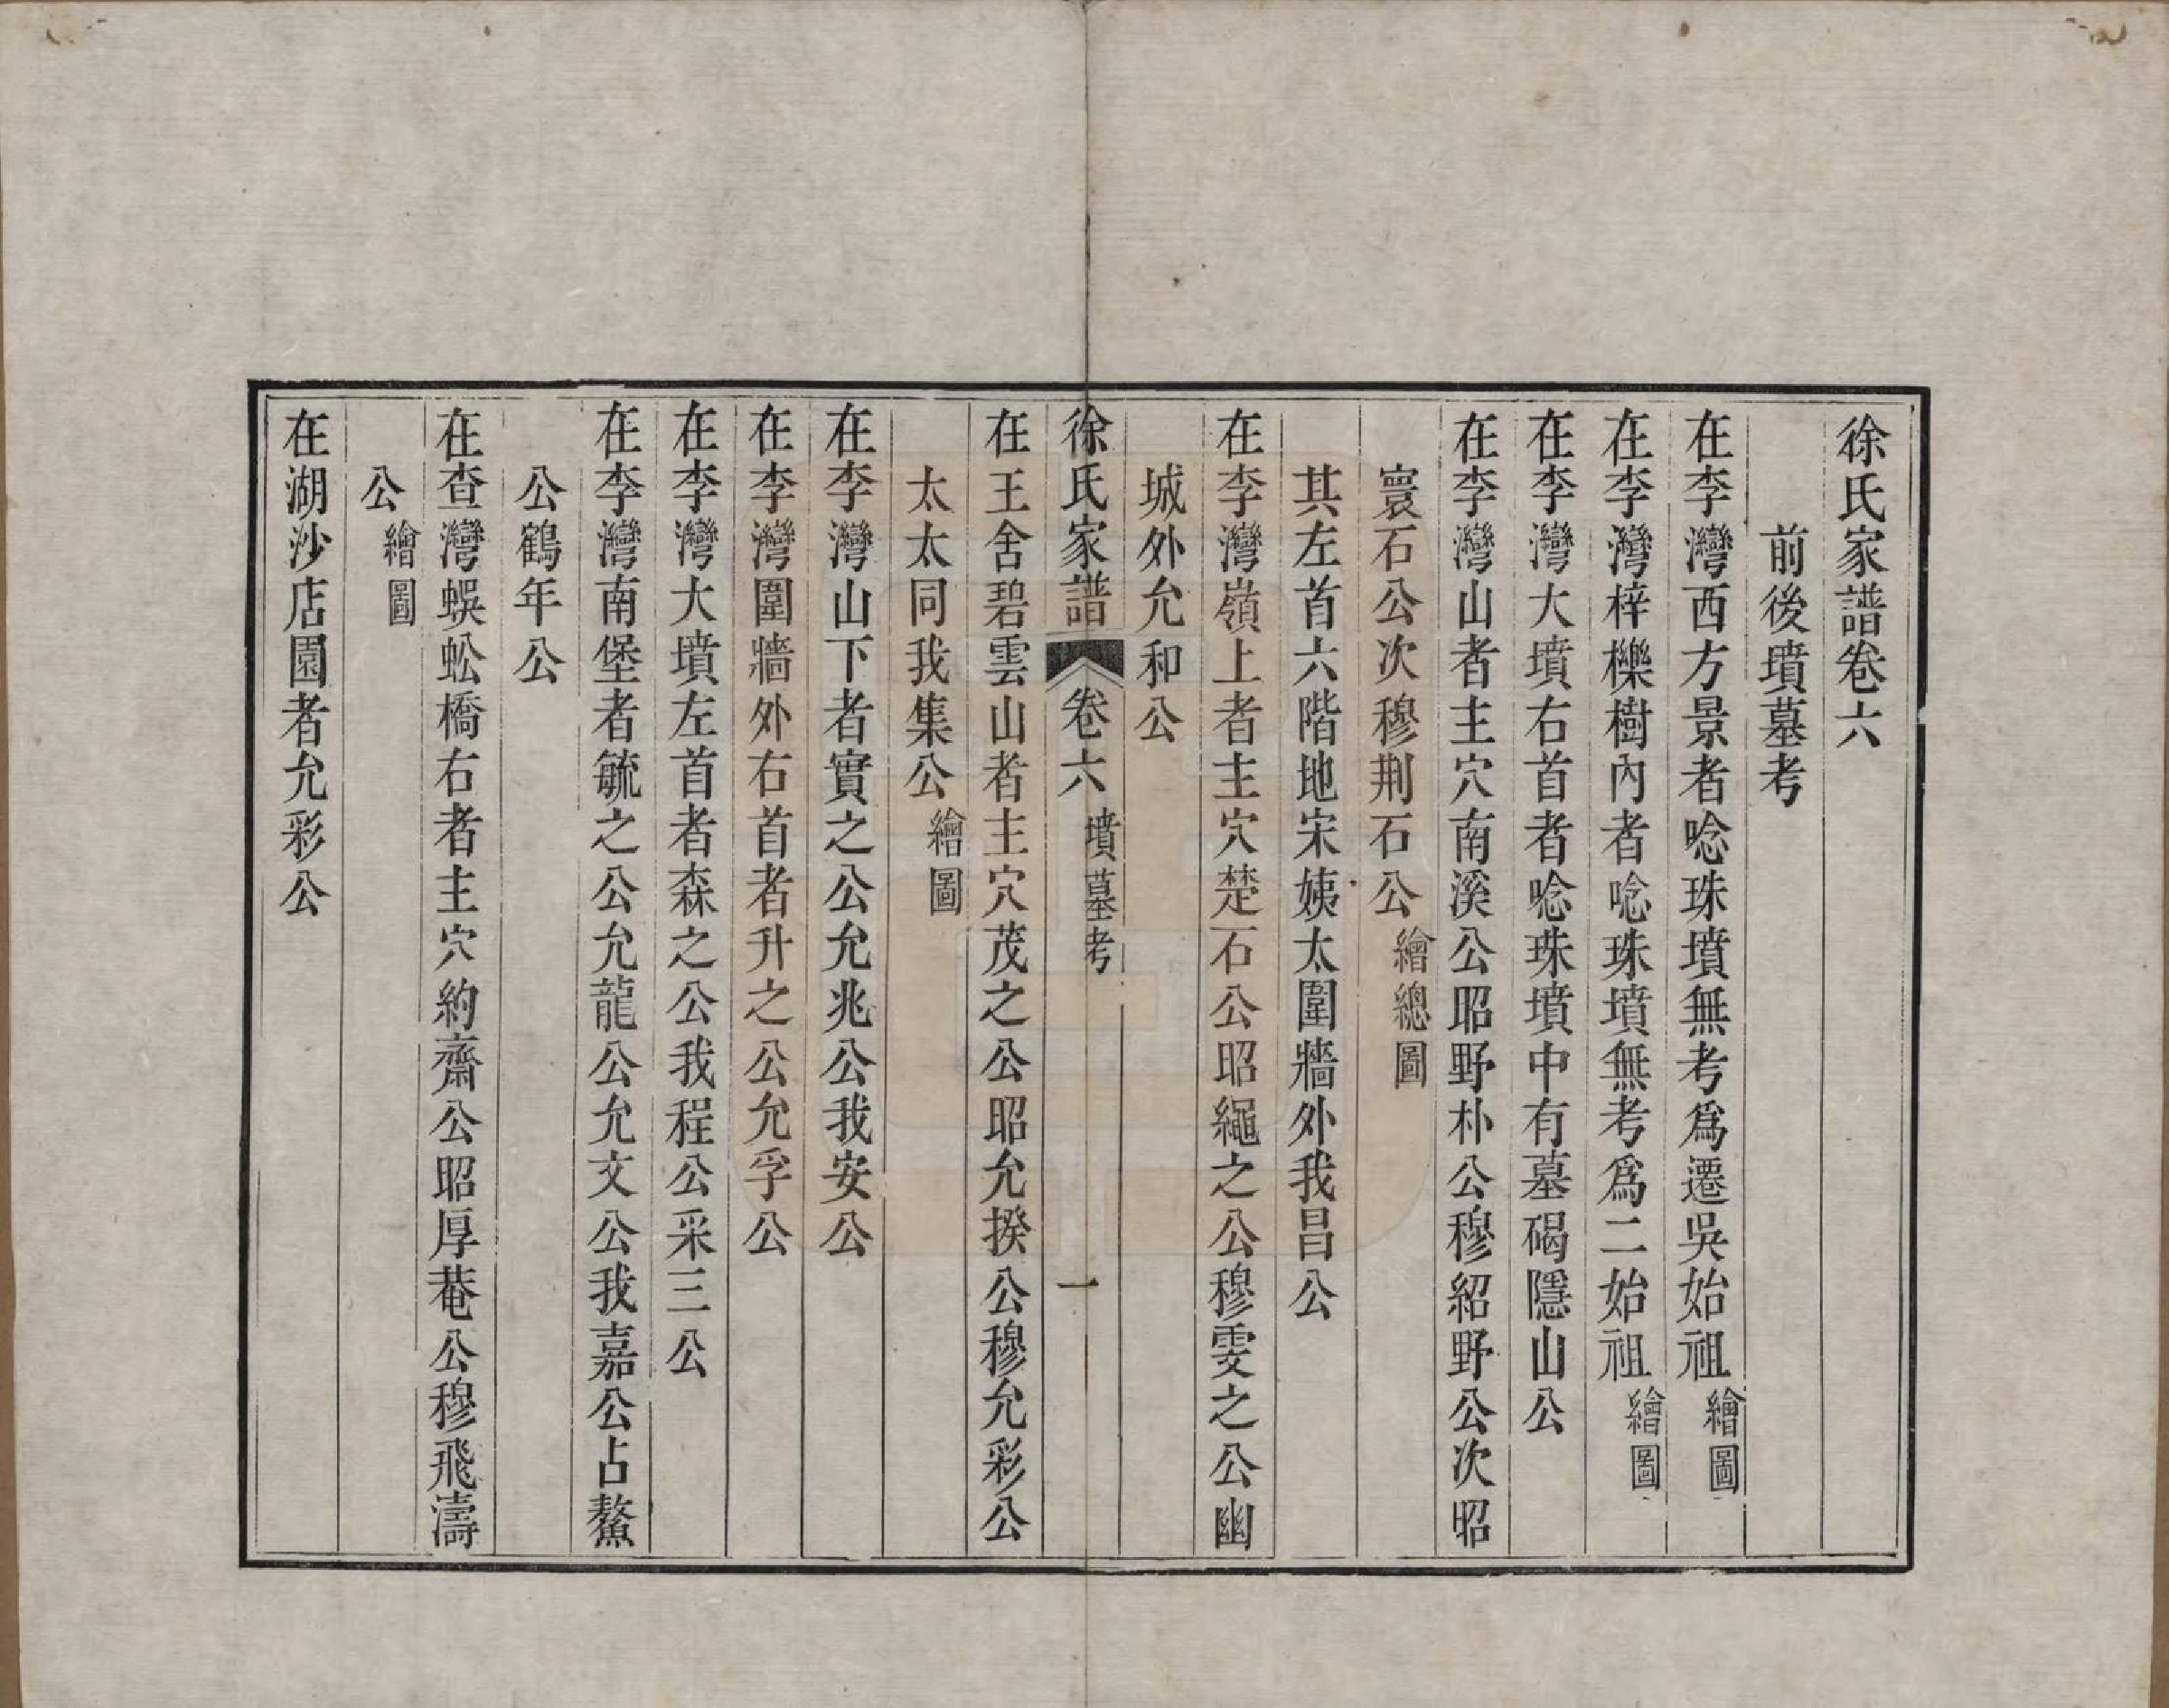 徐氏家譜卷六
前後墳墓考
在李灣西方景者唸珠墳無考爲遷吳始祖繪圖
在李灣梓櫟樹內者唸珠墳無考爲二始祖繪圖
在李灣大墳右首者唸珠墳中有墓碣隱山公
在李灣山者主穴南溪公昭野朴公穆紹野公次昭
寰石公次穆荆石公繪總圖
其左首六階地宋姨太圍牆外我昌公
在李灣嶺上者主穴楚石公昭繩之公穆雯之公幽
城外允和公
徐氏家譜 卷六 墳墓考 一
在王舍碧雲山者主穴茂之公昭允揆公穆允彩公
太太同我集公繪圖
在李灣山下者實之公允兆公我安公
在李灣圍牆外右首者升之公允孚公
在李灣大墳左首者森之公我程公采三公
在李灣南堡者毓之公允龍公允文公我嘉公占鰲
公鶴年公
在查灣蜈蚣橋右者主穴約齋公昭厚菴公穆飛濤
公繪圖
在湖沙店園者允彩公